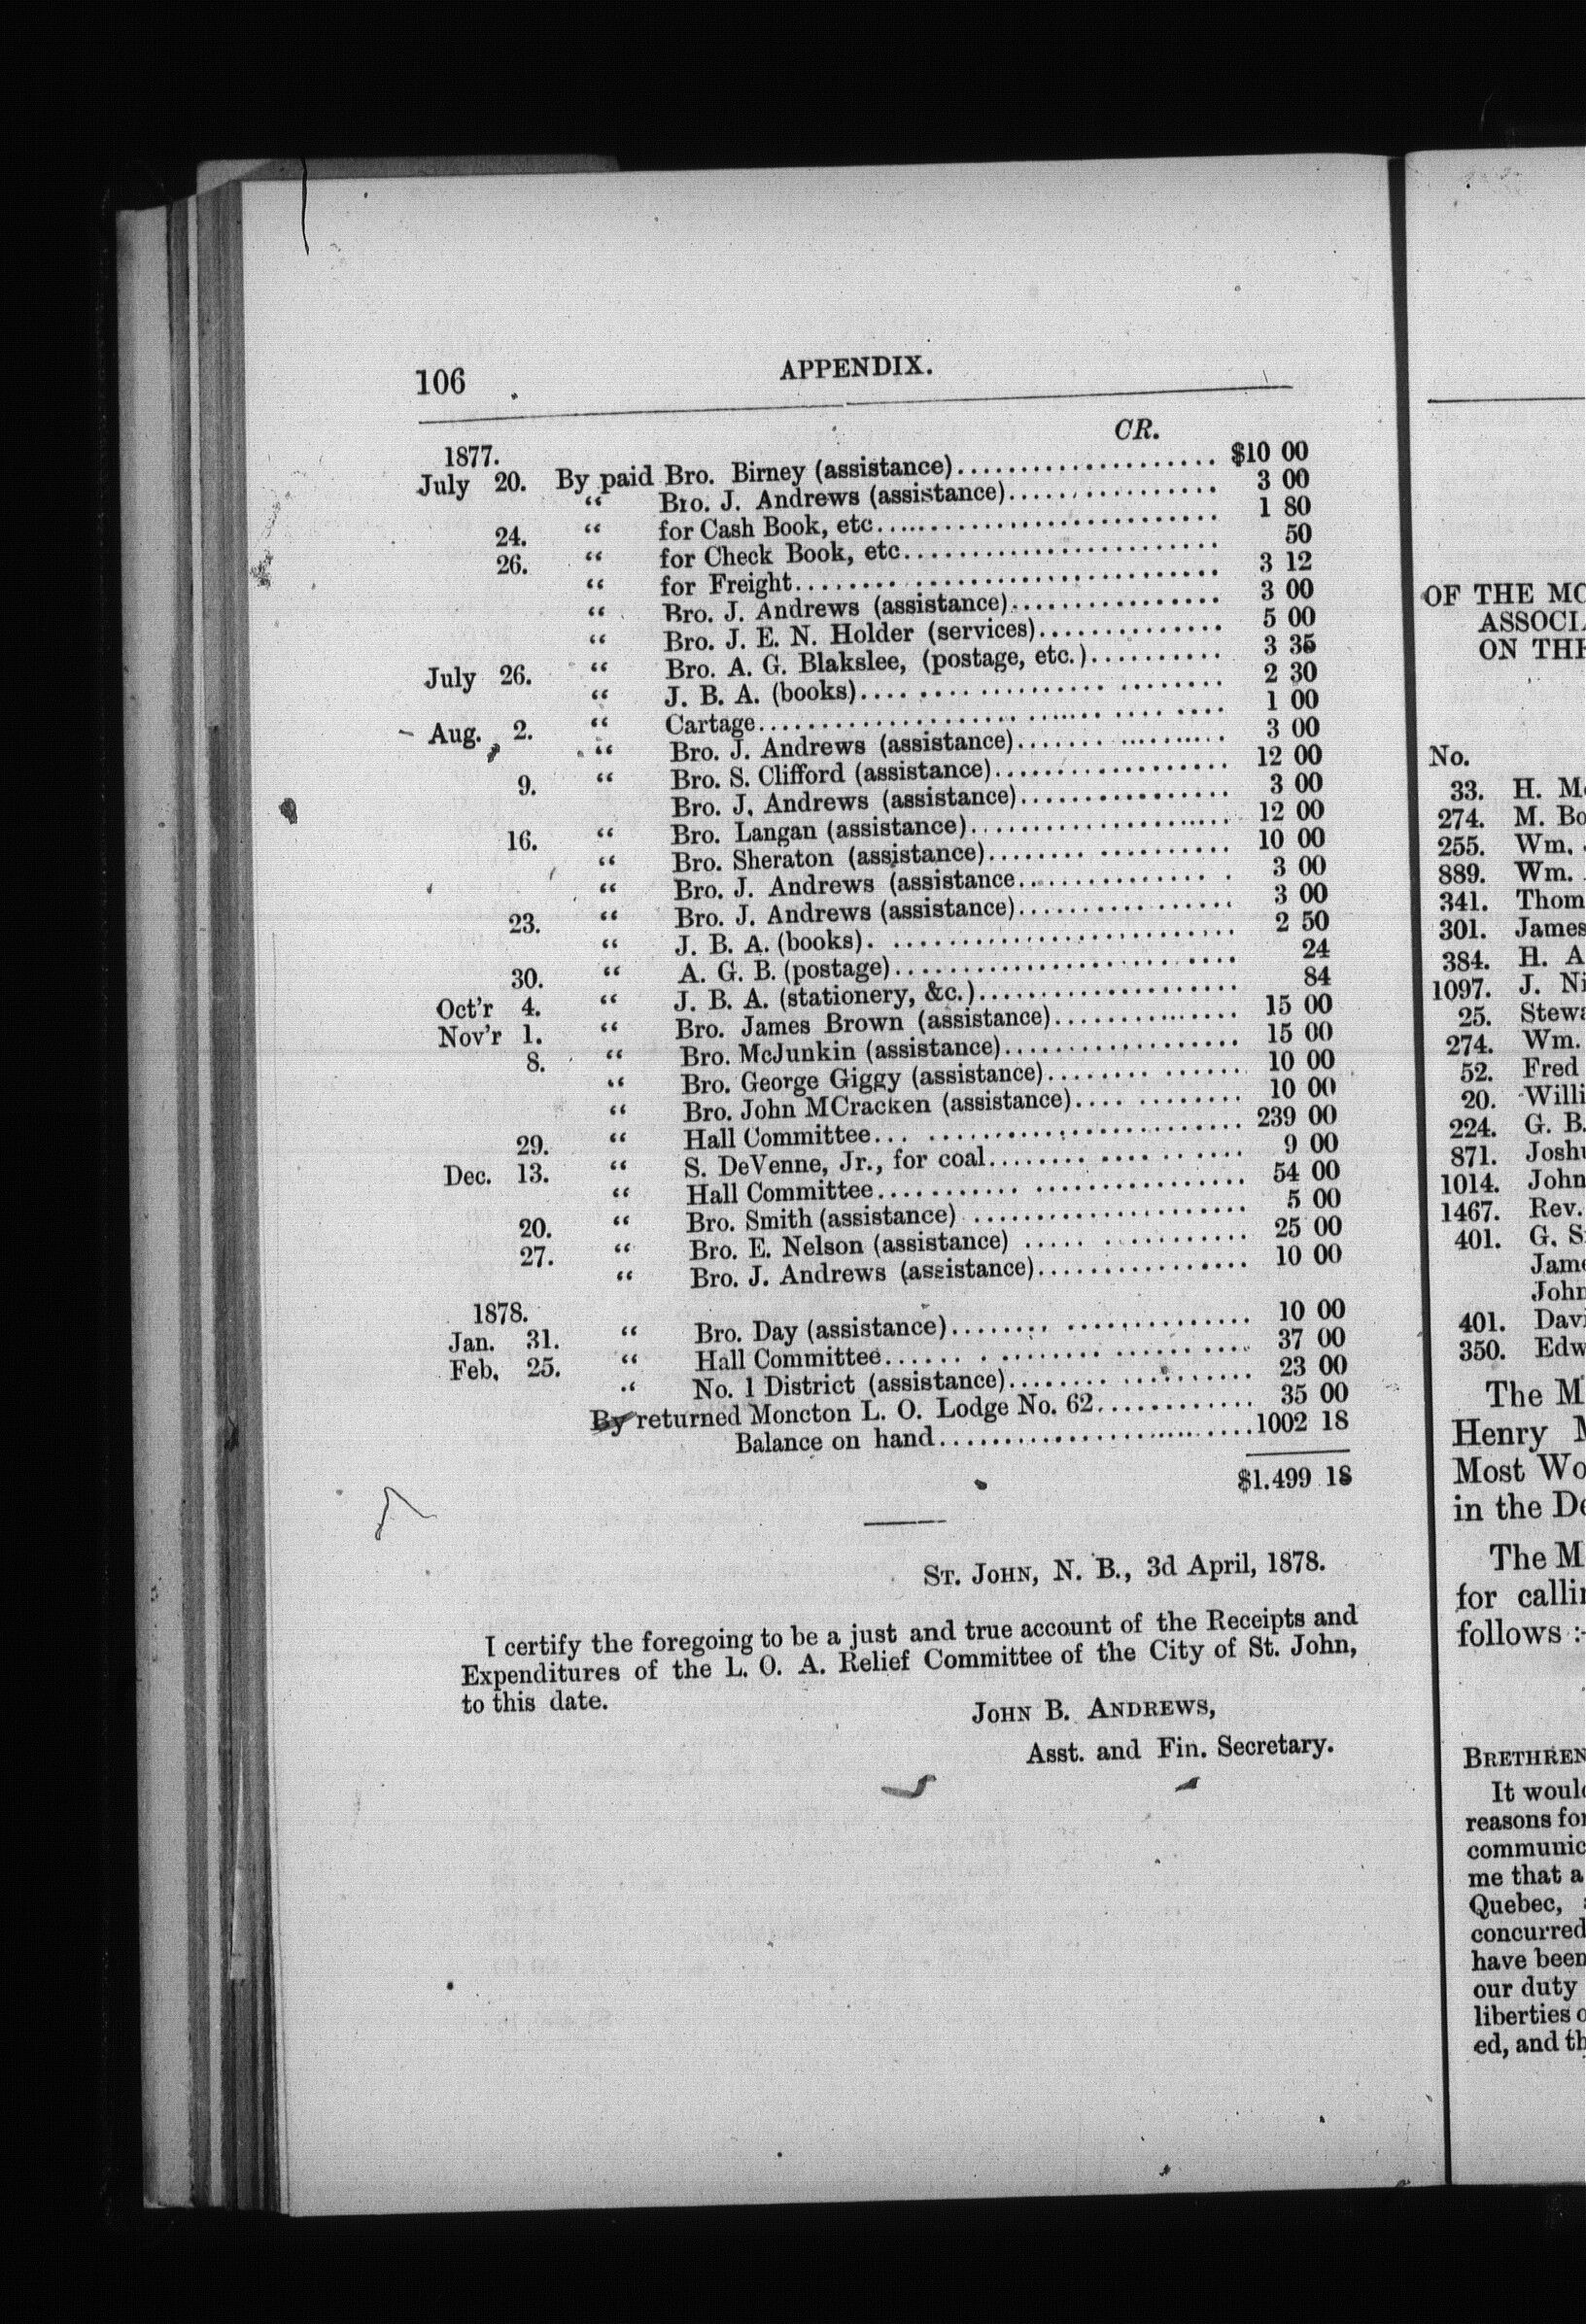 106 APPENDIX.
CR.
1877.
July 20. By paid Bro. Birney (assistance)..................... $10 00
“ Bro. J. Andrews (assistance)................. 3 00
24. “ for Cash Book, etc........................... 1 80
26. “ for Check Book, etc......................... 50
“ for Freight................................... 3 12
“ Bro. J. Andrews (assistance)................. 3 00
“ Bro. J. E. N. Holder (services).............. 5 00
July 26. “ Bro. A. G. Blakslee, (postage, etc.).......... 3 35
“ J. B. A. (books)............................. 2 30
Aug. 2. “ Cartage...................................... 1 00
“ Bro. J. Andrews (assistance)................. 3 00
9. “ Bro. S. Clifford (assistance)................... 12 00
Bro. J. Andrews (assistance)................. 3 00
16. “ Bro. Langan (assistance)..................... 12 00
“ Bro. Sheraton (assistance)................... 10 00
“ Bro. J. Andrews (assistance................. 3 00
23. “ Bro. J. Andrews (assistance)................. 3 00
“ J. B. A. (books)............................. 2 50
30. “ A. G. B. (postage)........................... 24
Oct'r 4. “ J. B. A. (stationery, &c.)..................... 84
Nov'r 1. “ Bro. James Brown (assistance)............... 15 00
8. “ Bro. McJunkin (assistance)................... 15 00
“ Bro. George Giggy (assistance)............... 10 00
“ Bro. John MCracken (assistance)............. 10 00
29. “ Hall Committee............................... 239 00
Dec. 13. “ S. DeVenne, Jr., for coal..................... 9 00
“ Hall Committee............................... 54 00
20. “ Bro. Smith (assistance) ..................... 5 00
27. “ Bro. E. Nelson (assistance) ................. 25 00
“ Bro. J. Andrews (assistance)................. 10 00
1878.
Jan. 31. “ Bro. Day (assistance)........................ 10 00
Feb. 25. “ Hall Committee............................... 37 00
“ No. 1 District (assistance)................... 23 00
By returned Moncton L. O. Lodge No. 62............ 35 00
Balance on hand..........................1002 18
$1.499 18
ST. JOHN, N. B., 3d April, 1878.
I certify the foregoing to be a just and true account of the Receipts and
Expenditures of the L. O. A. Relief Committee of the City of St. John,
to this date.
JOHN B. ANDREWS,
Asst. and Fin. Secretary.
OF THE
No.
33. H.
274. M.
255. Wm.
889. Wm.
341.
301. James
384. H. A
1097. J.
25.
274. Wm.
52. Fred
20.
224. G. B.
871.
1014. John
1467. Rev.
401. G.
401.
350.
The
Henry
Most
in the
The
for
follows :
BRETHREN
It
reasons
me that a
Quebec,
concurred
have been
our duty
liberties
ed, and